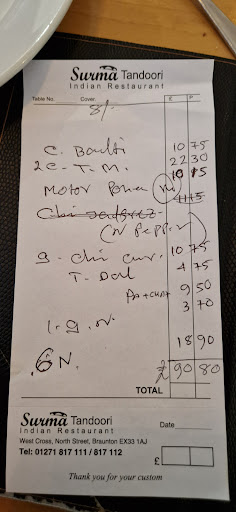 Surma Tandoori
Indian Restaurant
Table No. Cover. £ P
8/-
C. Balti 10 75
2 C. T. M. 22 30
Motor 10 95
4 75
Pepper
g. chi cur. 10 75
T. Dal 4 75
9 50
3 70
18 90
6 N.
£ 90 80
TOTAL
Surma Tandoori
Indian Restaurant
Date
West Cross, North Street, Braunton EX33 1AJ
Tel: 01271 817 111 / 817 112
£
Thank you for your custom